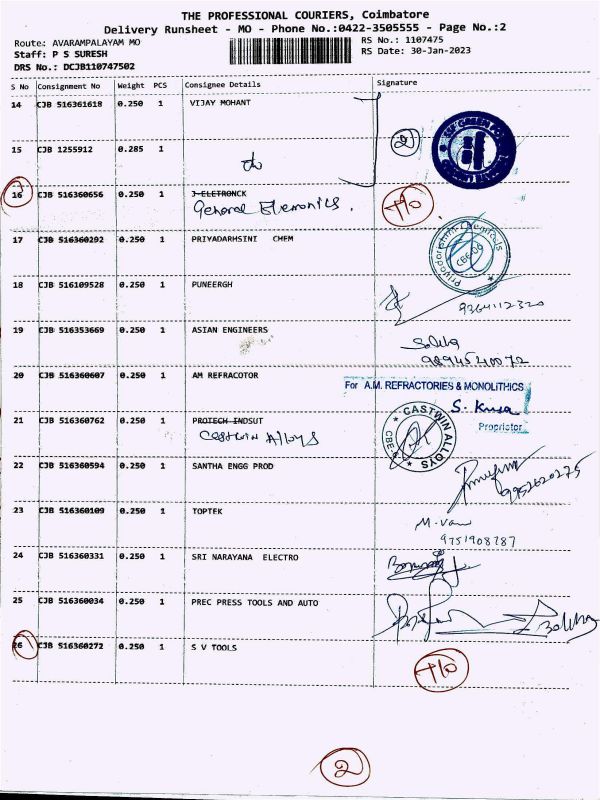 THE PROFESSIONAL COURIERS, Coimbatore
Delivery Runsheet - MO - Phone No.:0422-3505555 - Page No.:2
Route: AVARAMPALAYAM MO
RS No.: 1107475
Staff: P S SURESH
RS Date: 30-Jan-2023
DRS No.: DCJB110747502
S No Consignment No Weight PCS Consignee Details Signature
14 CJB 516361618 0.250 1 VIJAY MOHANT
15 CJB 1255912 0.285 1
2
16 CJB 516360656 0.250 1 J ELETRONCK
General Elemonics.
17 CJB 516360292 0.250 1 PRIYADARHSINI CHEM
Priyadarshini Chemicals
CBE-06
18 CJB 516109528 0.250 1 PUNEERGH
9364112320
19 CJB 516353669 0.250 1 ASIAN ENGINEERS
9894540072
20 CJB 516360607 0.250 1 AM REFRACOTOR
For A.M. REFRACTORIES & MONOLITHICS
Proprietor
21 CJB 516360762 0.250 1 PROTECH INDSUT
Castwin Alloys
CASTWIN ALLOYS
22 CJB 516360594 0.250 1 SANTHA ENGG PROD
9952620275
23 CJB 516360109 0.250 1 TOPTEK
9751908787
24 CJB 516360331 0.250 1 SRI NARAYANA ELECTRO
25 CJB 516360034 0.250 1 PREC PRESS TOOLS AND AUTO
26 CJB 516360272 0.250 1 S V TOOLS
2